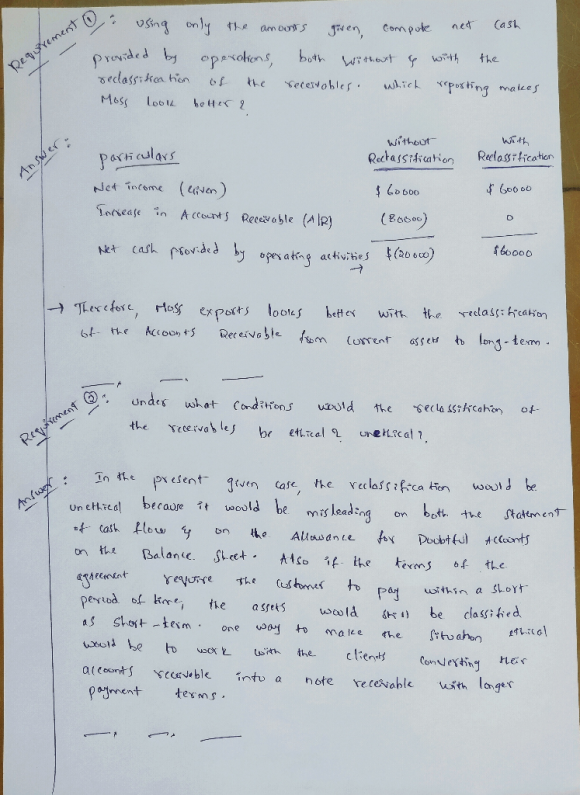 Requirement ① : using only the amounts given, compute net cash
provided by operations, both without & with the
reclassification of the receivables. which reporting makes
Moss look better ?
Answer :
particulars Without Reclassification With Reclassification
Net income (Given) $ 60000 $ 60000
Increase in Accounts Receivable (A/R) (80000) 0
Net cash provided by operating activities → $(20000) $60000
→ Therefore, Moss exports looks better with the reclassification
of the Accounts Receivable from current assets to long-term.
Requirement ② : under what conditions would the reclassification of
the receivables be ethical ? unethical ?
Answer : In the present given case, the reclassification would be
unethical because it would be misleading on both the statement
of cash flow & on the Allowance for Doubtful Accounts
on the Balance sheet. Also if the terms of the
agreement require the customer to pay within a short
period of time, the assets would still be classified
as short-term. one way to make the situation ethical
would be to work with the clients converting their
accounts receivable into a note receivable with longer
payment terms.